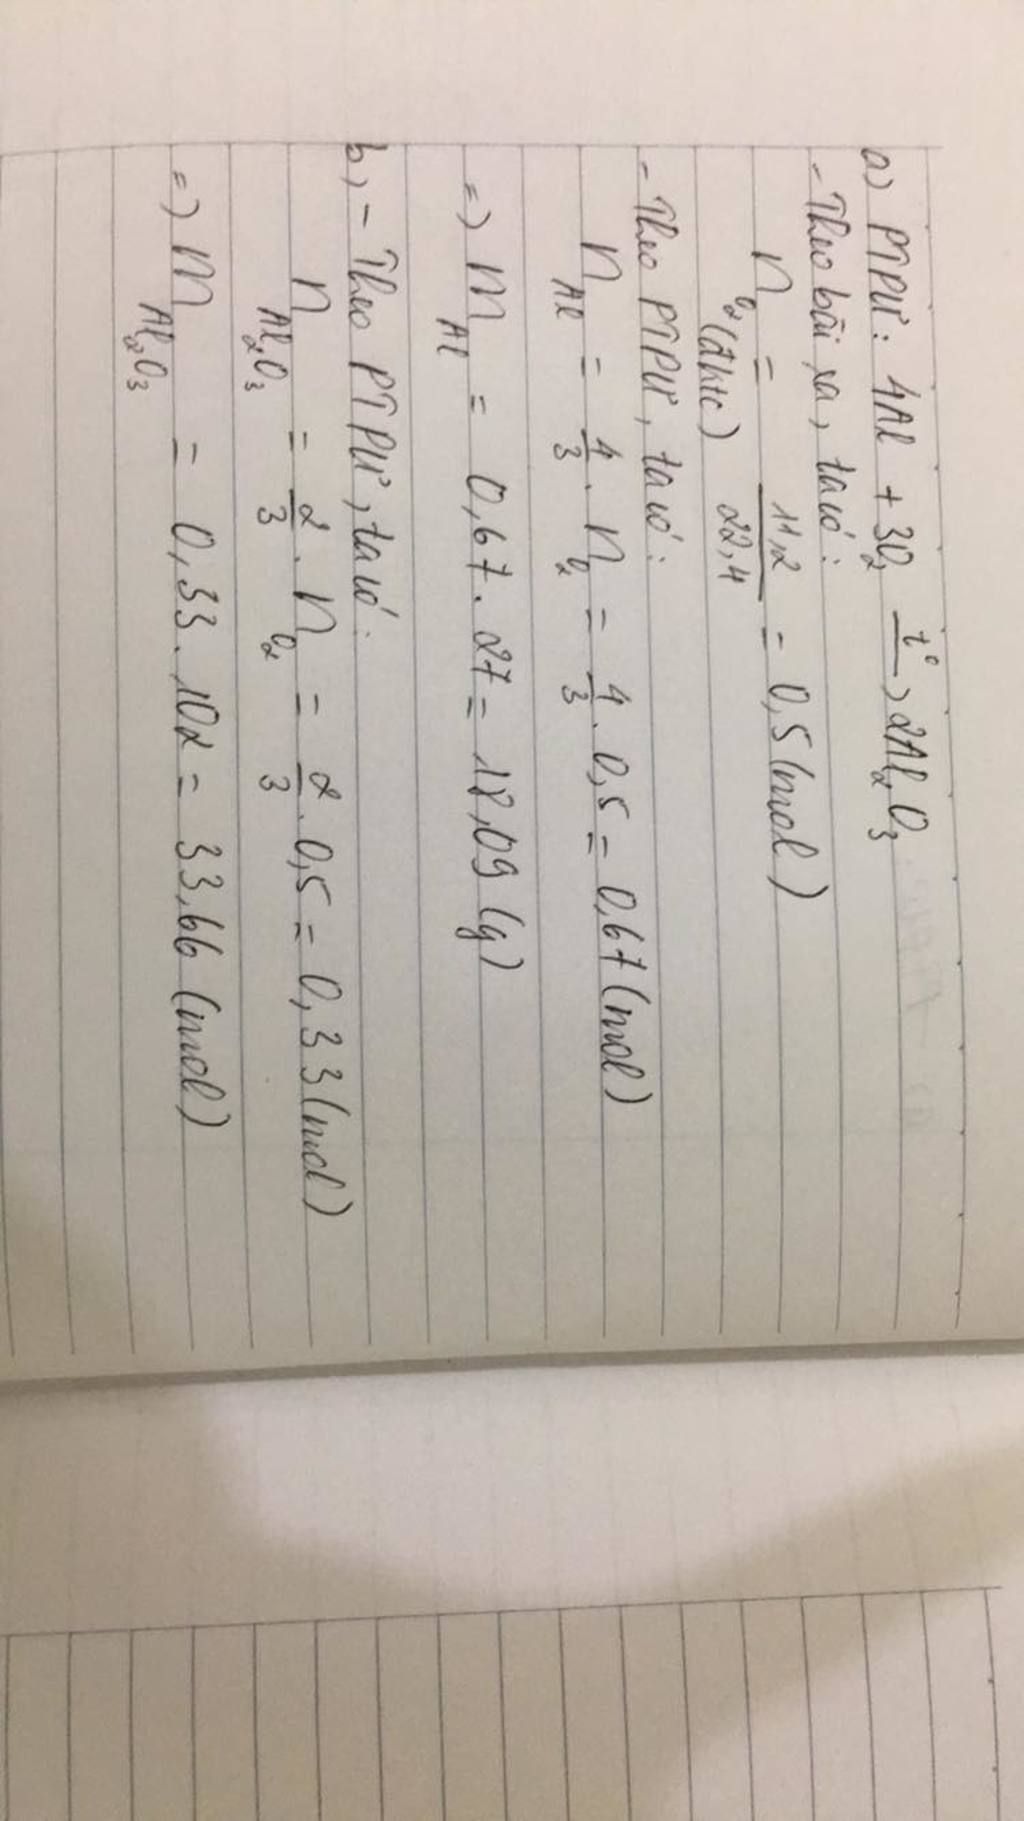 a) PTPƯ: 4Al + 3O₂ —t°—> 2Al₂O₃
- Theo bài ra, ta có:
n O₂(đktc) = 11,2/22,4 = 0,5 (mol)
- Theo PTPƯ, ta có:
n Al = 4/3 . n O₂ = 4/3 . 0,5 = 0,67 (mol)
=> m Al = 0,67 . 27 = 18,09 (g)
b, - Theo PTPƯ, ta có:
n Al₂O₃ = 2/3 . n O₂ = 2/3 . 0,5 = 0,33 (mol)
=> m Al₂O₃ = 0,33 . 102 = 33,66 (mol)